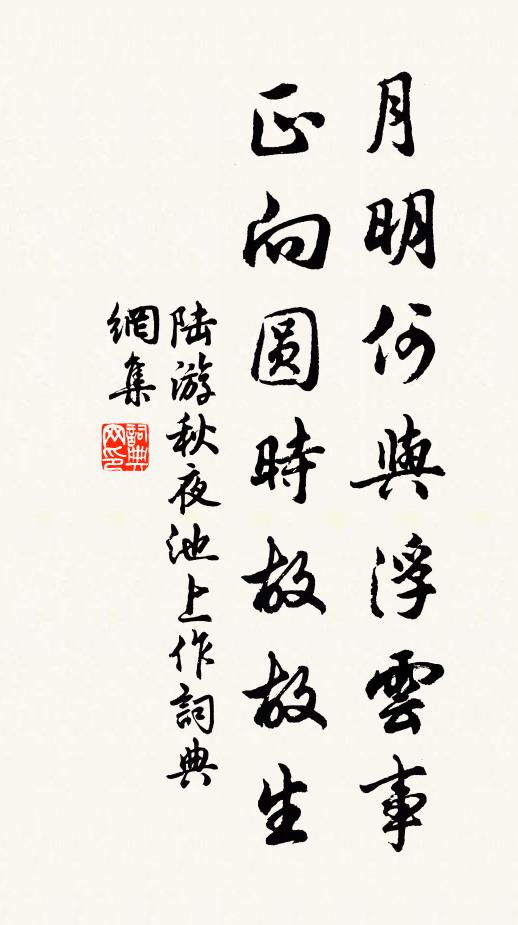 月明何與浮雲事
正向圓時故故生
陸游秋夜池上作詞典
網集
詞典
网印